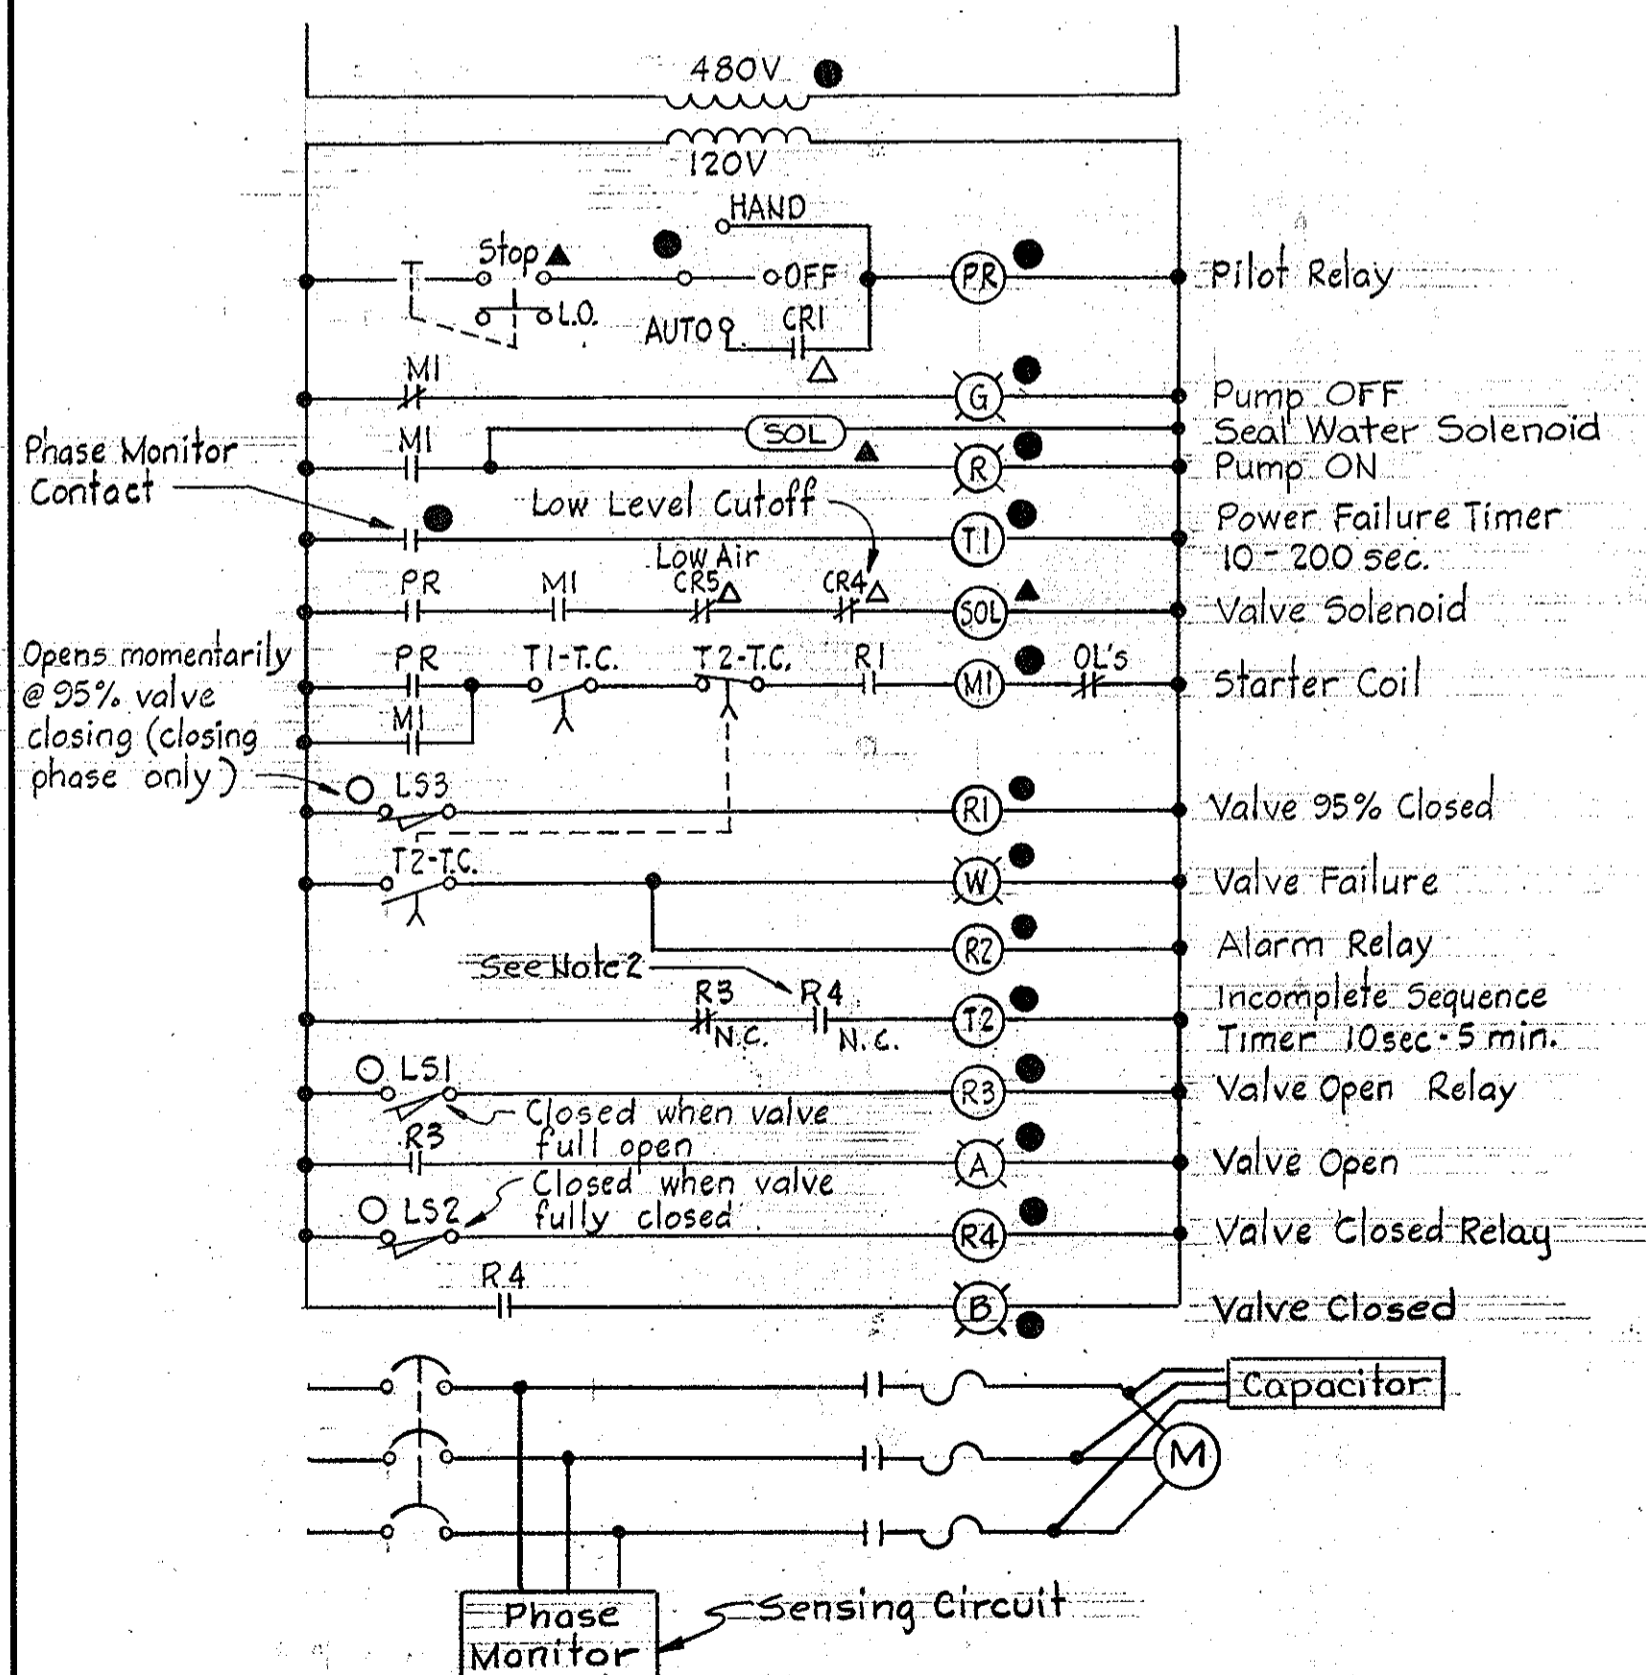 480V
120V
HAND
Stop
OFF
PR
Pilot Relay
L.O.
AUTO
CR1
M1
G
Pump OFF
SOL
Seal Water Solenoid
Phase Monitor
Contact
M1
R
Pump ON
Low Level Cutoff
T1
Power Failure Timer
10 - 200 sec.
Low Air
PR
M1
CR5
CR4
SOL
Valve Solenoid
Opens momentarily
@ 95% valve
closing (closing
phase only)
PR
T1-T.C.
T2-T.C.
R1
M1
OL's
Starter Coil
M1
LS3
R1
Valve 95% Closed
T2-T.C.
W
Valve Failure
R2
Alarm Relay
See Note 2
R3
N.C.
R4
N.C.
T2
Incomplete Sequence
Timer 10sec - 5 min.
LS1
R3
Valve Open Relay
Closed when valve
full open
R3
A
Valve Open
Closed when valve
fully closed
LS2
R4
Valve Closed Relay
R4
B
Valve Closed
Capacitor
M
Phase
Monitor
Sensing Circuit